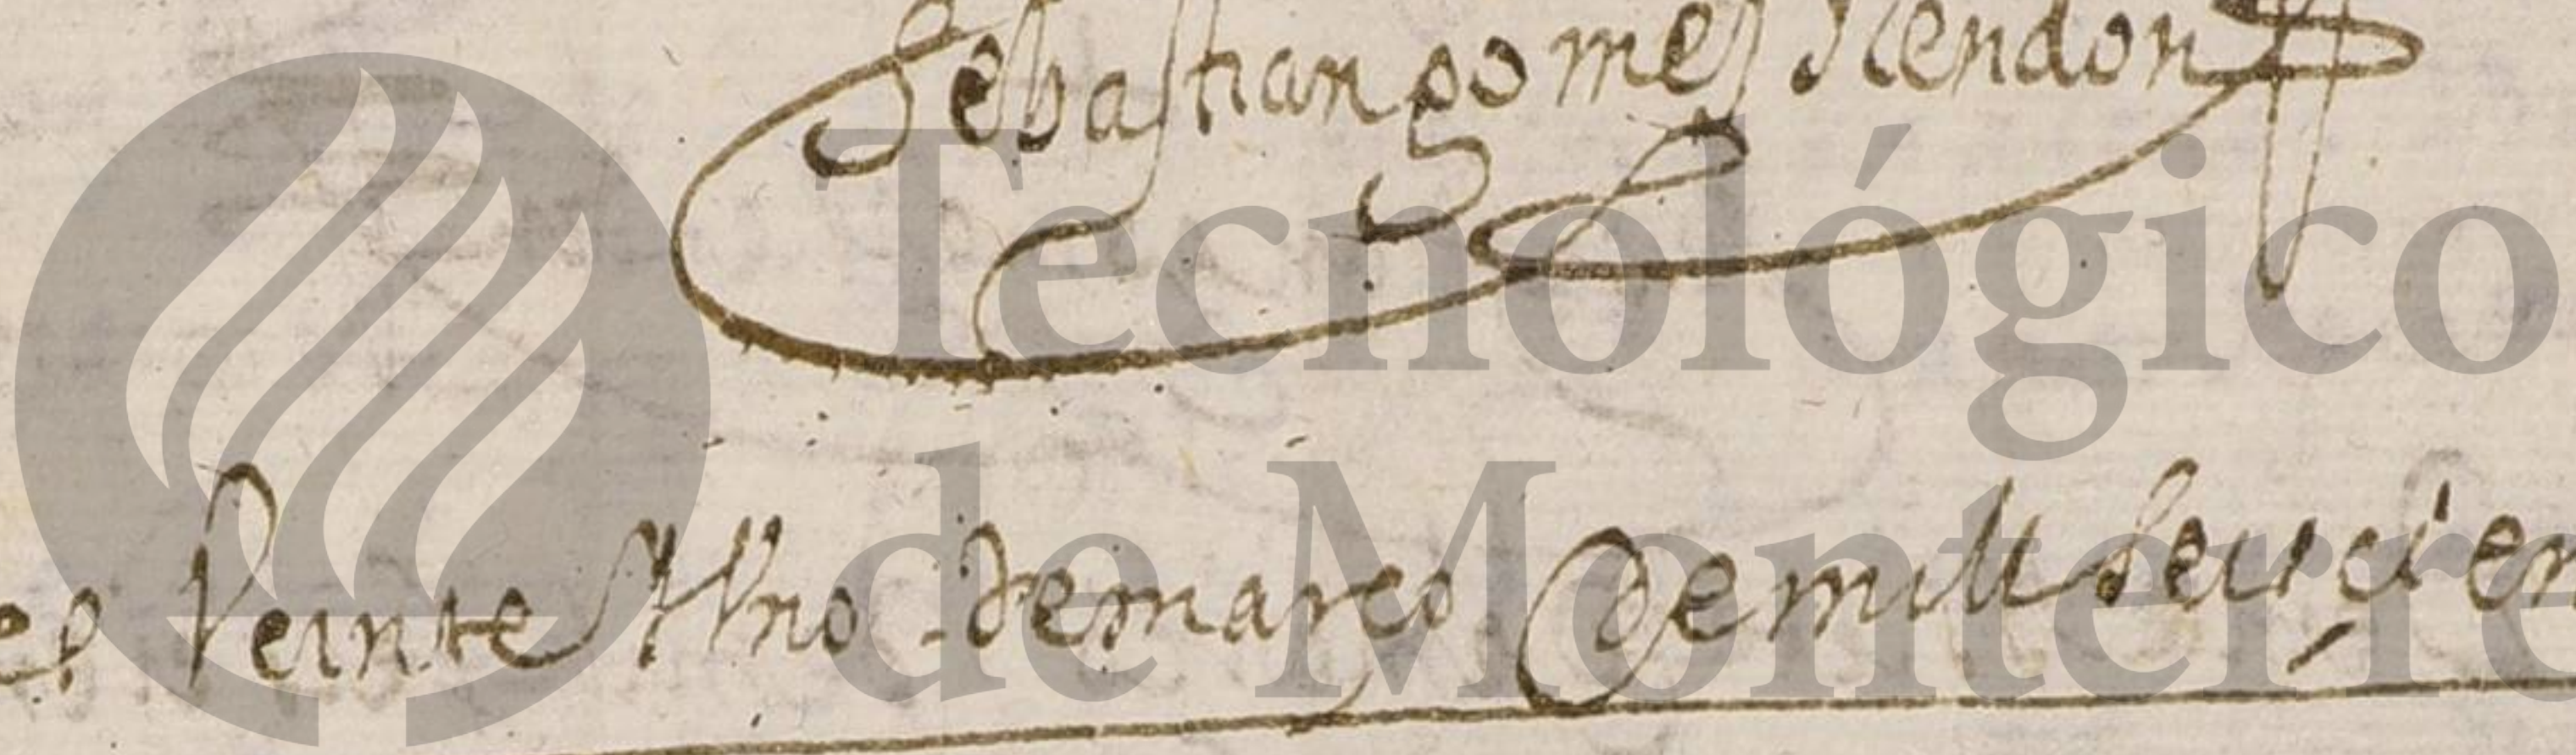 Sebastian gomes Rendon
Tecnológico
de Monterre
es Veinte Y Vno de março de mill seiscien